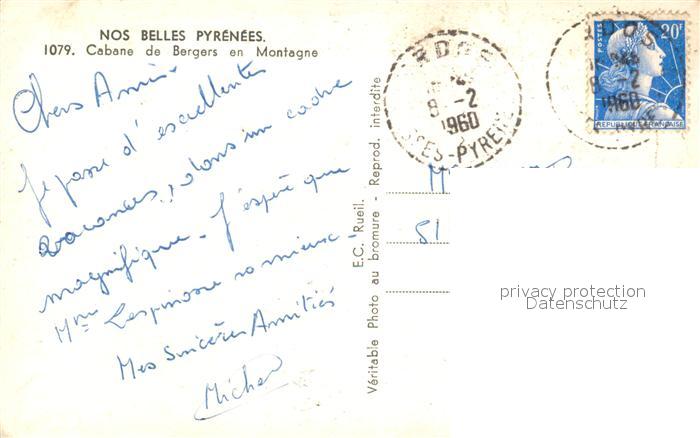 NOS BELLES PYRÉNÉES.
1079. Cabane de Bergers en Montagne
Chers Amis
Je passe d'excellentes
vacances, dans un cadre
magnifique. J'espère que
Mme Lespinasse va mieux.
Mes Sincères Amitiés
Michel
E.C. Rueil.
Véritable Photo au bromure - Reprod. interdite
8 -2
1960
SSES-PYRENE
POSTES
20F
REPUBLIQUE FRANÇAISE
8 -2
1960
51
privacy protection
Datenschutz